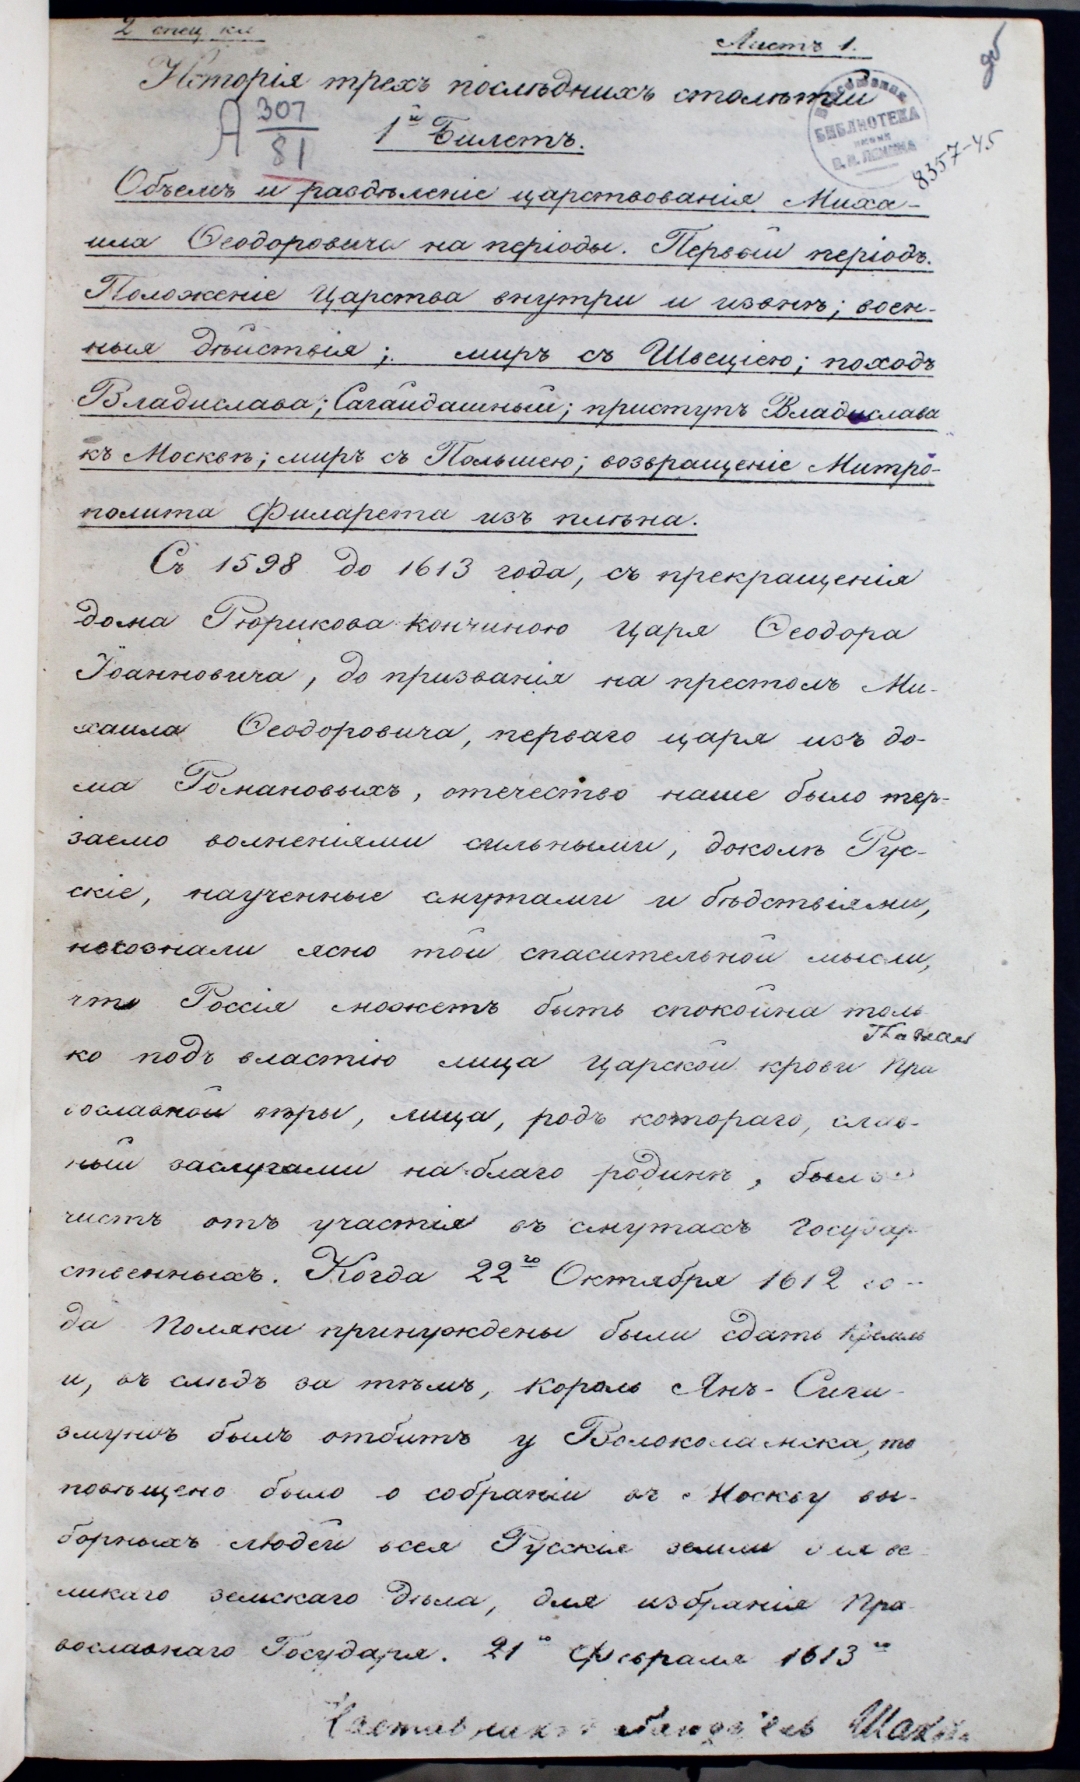 2 спец. кл.
Листъ 1.
Исторія трехъ послѣднихъ столѣтій
А 307
81
1й Билетъ.
БИБЛИОТЕКА
В. И. ЛЕНИНА
8357-45
Объемъ и раздѣленіе царствованія Миха-
ила Ѳеодоровича на періоды. Первый періодъ.
Положеніе Царства внутри и извнѣ; воен-
ныя дѣйствія; миръ съ Швеціею; походъ
Владислава; Сагайдашный; приступъ Владислава
къ Москвѣ; миръ съ Польшею; возвращеніе Митро-
полита Филарета изъ плѣна.
Съ 1598 до 1613 года, съ прекращенія
дома Рюрикова кончиною Царя Ѳеодора
Іоанновича, до призванія на престолъ Ми-
хаила Ѳеодоровича, перваго царя изъ до-
ма Романовыхъ, отечество наше было тер-
заемо волненіями сильными, доколѣ Рус-
скіе, наученные смутами и бѣдствіями,
несознали ясно той спасительной мысли,
что Россія можетъ быть спокойна толь
ко подъ властію лица Царской крови Пра
вославной вѣры, лица, родъ котораго, слав-
ный заслугами на благо родинѣ, былъ
чистъ отъ участія въ смутахъ Государ-
ственныхъ. Когда 22го Октября 1612 го-
да Поляки принуждены были сдать Кремль
и, въ слѣдъ за тѣмъ, Король Янъ-Сиги-
змундъ былъ отбитъ у Волоколамска, то
повѣщено было о собраніи въ Москву вы-
борныхъ людей всея Русскія земли для ве-
ликаго земскаго дѣла, для избранія Пра-
вославнаго Государя. 21го Февраля 1613го
Наставникъ